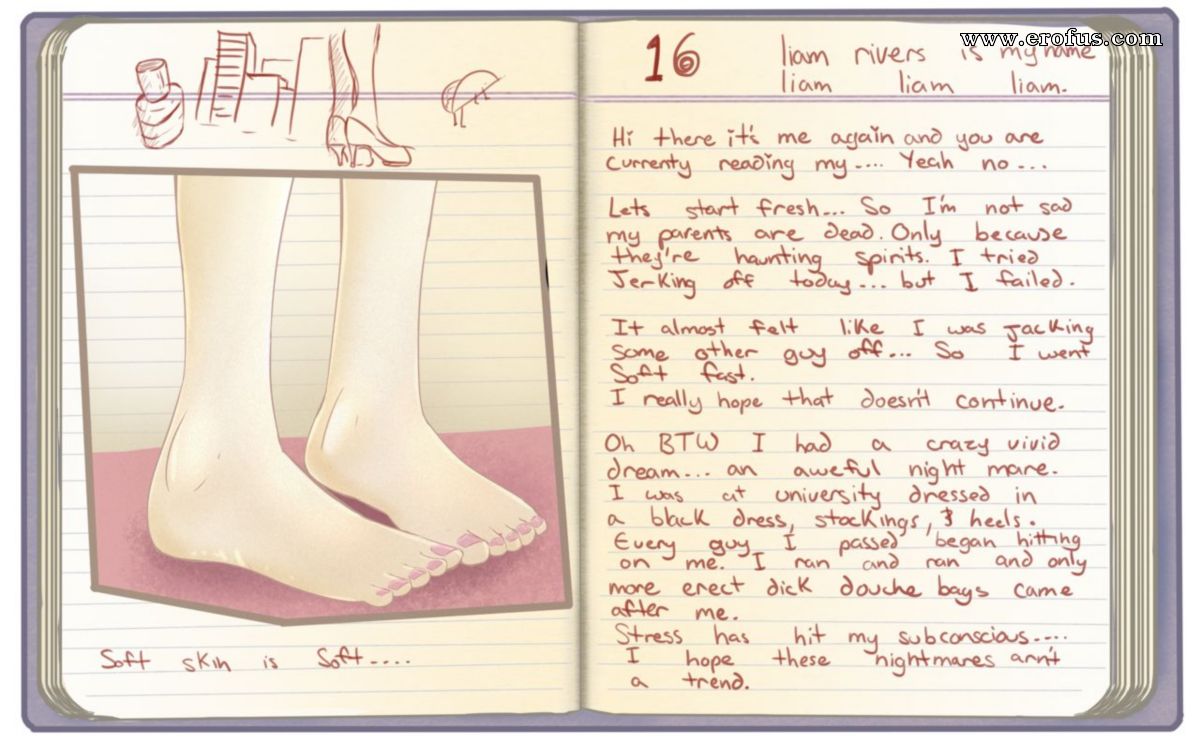 www.erofus.com
Soft skin is Soft....
16
liam rivers is my name
liam liam liam.
Hi there it's me again and you are
currenty reading my.... Yeah no...
Lets start fresh... So I'm not sad
my parents are dead. Only because
they're haunting spirits. I tried
Jerking off today... but I failed.
It almost felt like I was jacking
some other guy off... So I went
Soft fast.
I really hope that doesn't continue.
Oh BTW I had a crazy vivid
dream... an aweful night mare.
I was at university dressed in
a black dress, stockings, & heels.
Every guy I passed began hitting
on me. I ran and ran and only
more erect dick douche bags came
after me.
Stress has hit my subconscious....
I hope these nightmares arn't
a trend.